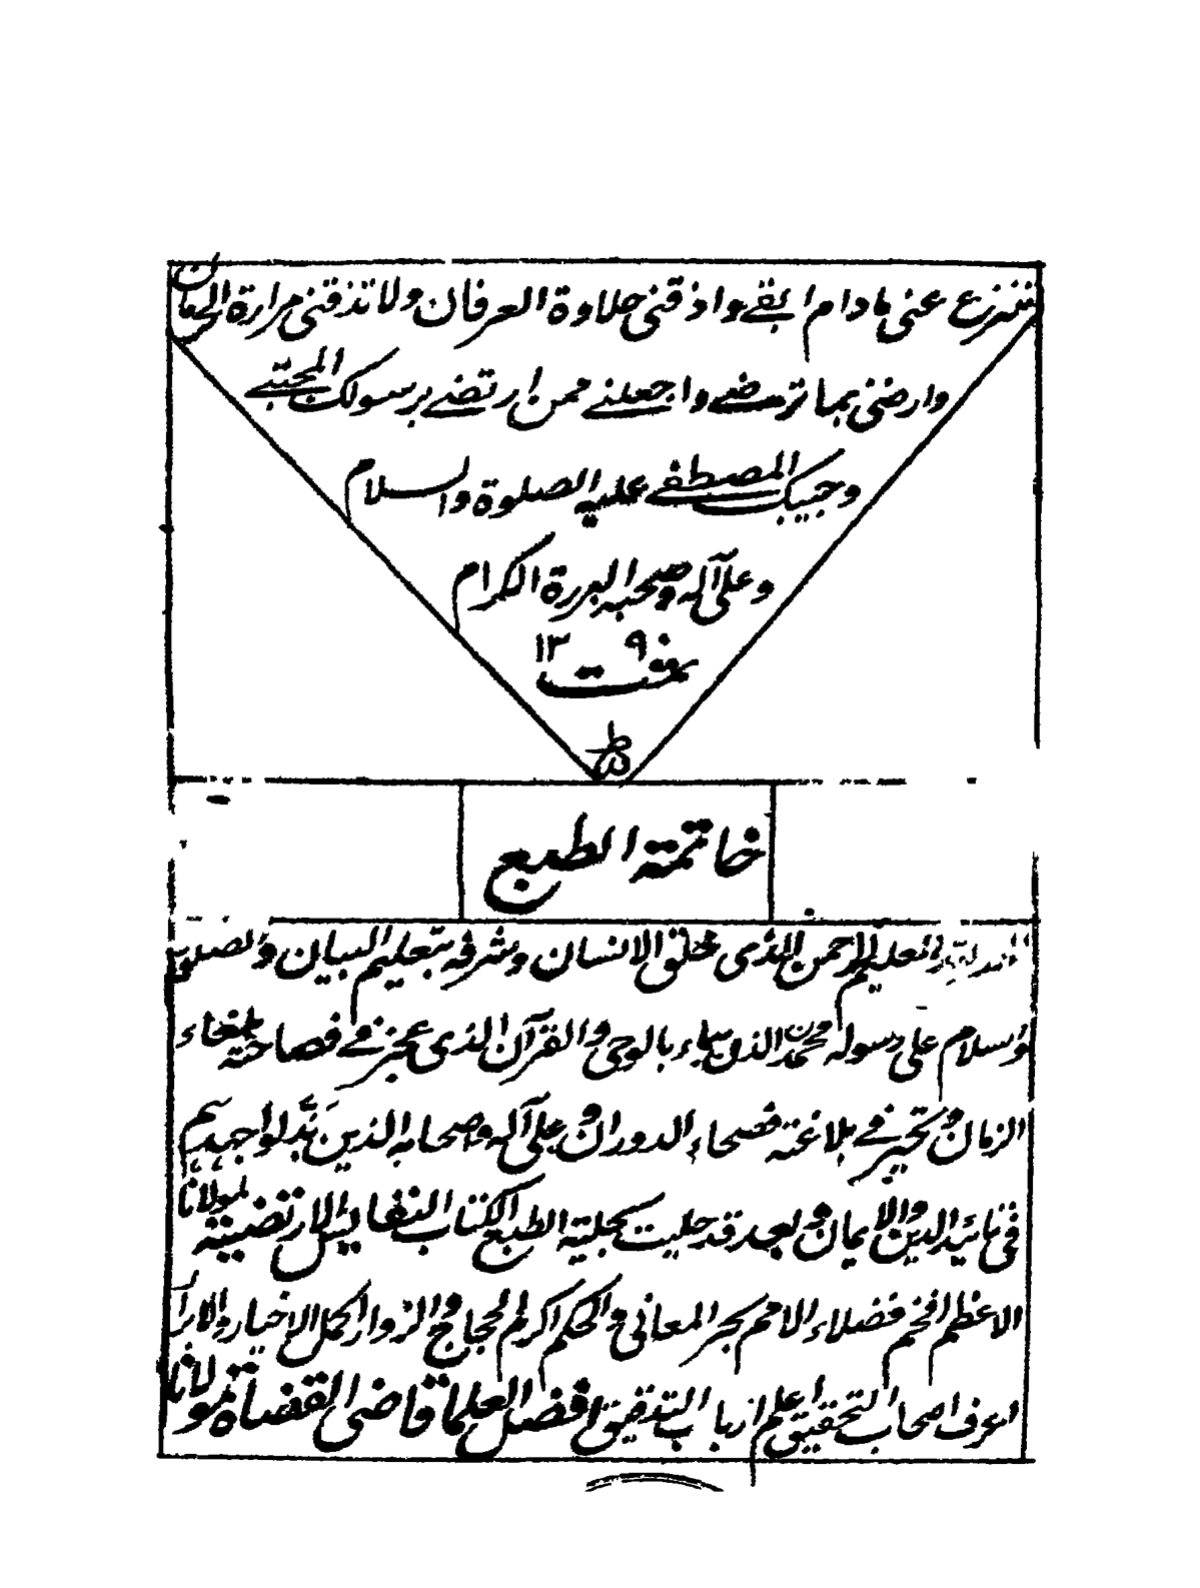 تنزع عنى ما دام ابقى واذقنى حلاوة العرفان ولا تذقنى مرارة الحرمان
وارضنى بما ترضى واجعلنے ممن ارتضے برسولك المجتبے
وحبيبك المصطفے عليه الصلوة والسلام
وعلى آله وصحبه البررة الكرام
١٣٩٠
تمت
خاتمة الطبع
الحمد لله العليم الرحمن الذى خلق الانسان وشرفه بتعليم البيان والصلوة
والسلام على رسوله محمدن الذى جاء بالوحى والقرآن الذى عجز فے فصاحته بلغاء
الزمان وتحير فے بلاغته فصحاء الدوران وعلى آله وصحابه الذين بذلوا جهدهم
فى تائيد الدين والايمان وبعد قد حليت بحلية الطبع الكتاب النفايس الارتضية لمولانا
الاعظم افخم فضلاء الامم بحر المعانى والحكم اكرم الحجاج والزوار اكمل الاخيار والابرار
اعرف اصحاب التحقيق اعلم ارباب التدقيق افضل العلماء قاضى القضاة مولانا